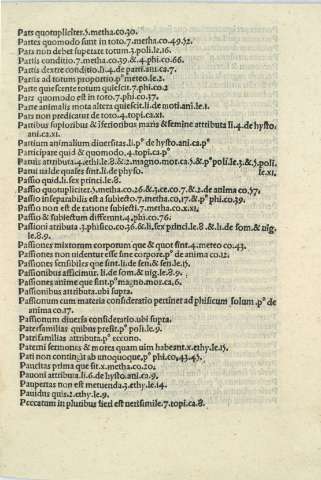 Pars quotupliciter.5.metha.co.30.
Partes quomodo sunt in toto.7.metha.co.49.52.
Pars non debet superare totum.3.poli.le.16.
Partis conditio.7.metha.co.39.&.4.phi.co.66.
Partis dextre conditio.li.4.de parti.ani.ca.7.
Partis ad totum proportio.pº metheo.le.2.
Parte quiescente totum quiescit.7.phi.co.2
Pars quomodo est in toto.7.phi.co.37.
Parte animalis mota altera quiescit.li.de moti.ani.le.1.
Pars non predicatur de toto.4.topi.ca.xi.
Partibus superioribus & inferioribus maris & femine attributa li.4.de hysto.
ani.ca.xi.
Partium animalium diuersitas.li.pº de hysto.ani.ca.pº
Participare quid & quomodo.4.topi.ca.pº
Paruis attributa.4.ethi.le.8.&.2.magno.mor.ca.5.&.pº poli.le.3.&.5.poli.
le.xi.
Parui ualde quales sint.li.de physo.
Passio quid.li.sex princi.le.8.
Passio quotupliciter.5.metha.co.26.&.3.ce.co.7.&.2.de anima co.57.
Passio inseparabilis est a subiecto.7.metha.co.17.&.pº phi.co.39.
Passio non est de ratione subiecti.7.metha.co.x.xi.
Passio & subiectum differunt.4.phi.co.76.
Passioni attributa.3.phisico.co.36.&.li.sex princi.le.8.&.li.de som.& uig.
le.8.9.
Passiones mixtorum corporum que & quot sint.4.metero co.43.
Passiones non uidentur esse sine corpore.pº de anima co.12.
Passiones sensibiles que sint.li.de sen.& sen.le.15.
Passionibus afficimur.li.de som.& uig.le.8.9.
Passiones anime que sint.pº magno.mor.ca.6.
Passionibus attributa.ubi supra.
Passionum cum materia consideratio pertinet ad phisicum solum.pº de
anima co.17.
Passionum diuersa consideratio.ubi supra.
Paterfamilias quibus presit.pº poli.le.9.
Patrifamilias attributa.pº econo.
Paterni sermones & mores quam uim habeant.x.ethy.le.15.
Pati non contingit ab unoquoque.pº phi.co.43.45.
Paucitas prima que sit.x.metha.co.20.
Pauoni attributa.li.6.de hysto.ani.ca.9.
Paupertas non est metuenda.3.ethy.le.14.
Pauidus quis.2.ethy.le.9.
Peccatum in pluribus fieri est uerisimile.7.topi.ca.8.